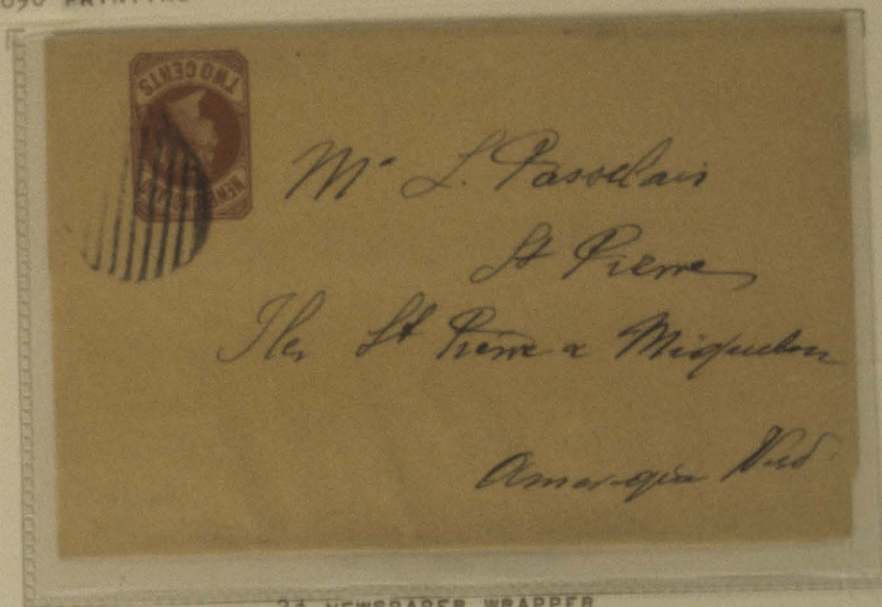 1890 PRINTING
TWO CENTS
NEWFOUNDLAND
Mr L. Passelais
St Pierre
Iles St Pierre & Miquelon
Amerique Nord
2¢ NEWSPAPER WRAPPER